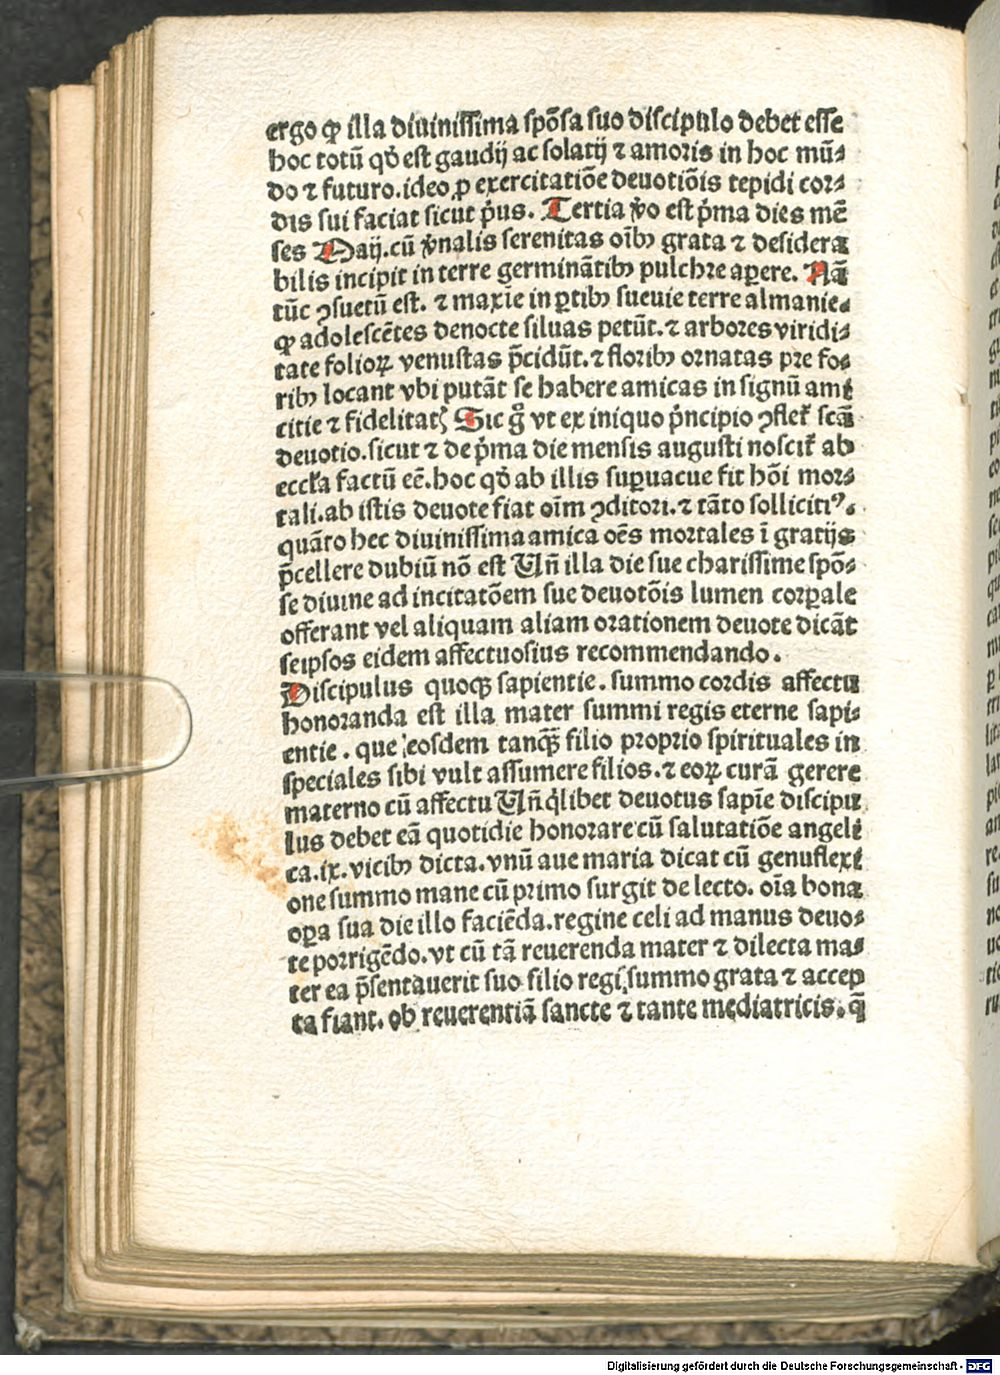 ergo ꝙ illa diuinissima spōsa suo discipulo debet esse
hoc totū qđ est gaudij ac solatij ⁊ amoris in hoc mū⸗
do ⁊ futuro.ideo ꝓ exercitatiōe deuotiōis tepidi cor⸗
dis sui faciat sicut p̄us. Tertia v̄o est p̄ma dies mē
ses Maij.cū v̄nalis serenitas oībꝫ grata ⁊ desidera
bilis incipit in terre germinātibꝫ pulchre aꝑere. Nā
tūc ꝯsuetū est. ⁊ maxīe in ꝑtibꝫ sueuie terre almanie.
ꝙ adolescētes denocte siluas petūt.⁊ arbores viridi⸗
tate folioꝝ venustas p̄cidūt.⁊ floribꝫ ornatas pre fo⸗
ribꝫ locant vbi putāt se habere amicas in signū ami
citie ⁊ fidelitatꝭ Sic gͦ vt ex iniquo p̄ncipio ꝯfletꝛ scā
deuotio.sicut ⁊ de p̄ma die mensis augusti noscitꝛ ab
eccłia factū eē.hoc qđ ab illis suꝑuacue fit hōi mor⸗
tali.ab istis deuote fiat oīm ꝯditori.⁊ tāto sollicitiꝰ.
quāto hec diuinissima amica oēs mortales ī gratijs
p̄cellere dubiū nō est Vñ illa die sue charissime spō⸗
se diuine ad incitatōem sue deuotōis lumen corꝑale
offerant vel aliquam aliam orationem deuote dicāt
seipsos eidem affectuosius recommendando.
Discipulus quoqꝫ sapientie. summo cordis affectu
honoranda est illa mater summi regis eterne sapi⸗
entie. que eosdem tanqꝫ̄ filio proprio spirituales in
speciales sibi vult assumere filios.⁊ eoꝝ curā gerere
materno cū affectu Vñ qͥlibet deuotus sapīe discipu
lus debet eā quotidie honorare cū salutatiōe angeli
ca.ix.vicibꝫ dicta.vnū aue maria dicat cū genuflexi
one summo mane cū primo surgit de lecto. oīa bona
oꝑa sua die illo faciēda.regine celi ad manus deuo⸗
te porrigēdo.vt cū tā reuerenda mater ⁊ dilecta ma⸗
ter ea p̄sentauerit suo filio regi summo grata ⁊ accep
ta fiant. ob reuerentiā sancte ⁊ tante mediatricis. q̄
Digitalisierung gefördert durch die Deutsche Forschungsgemeinschaft - DFG